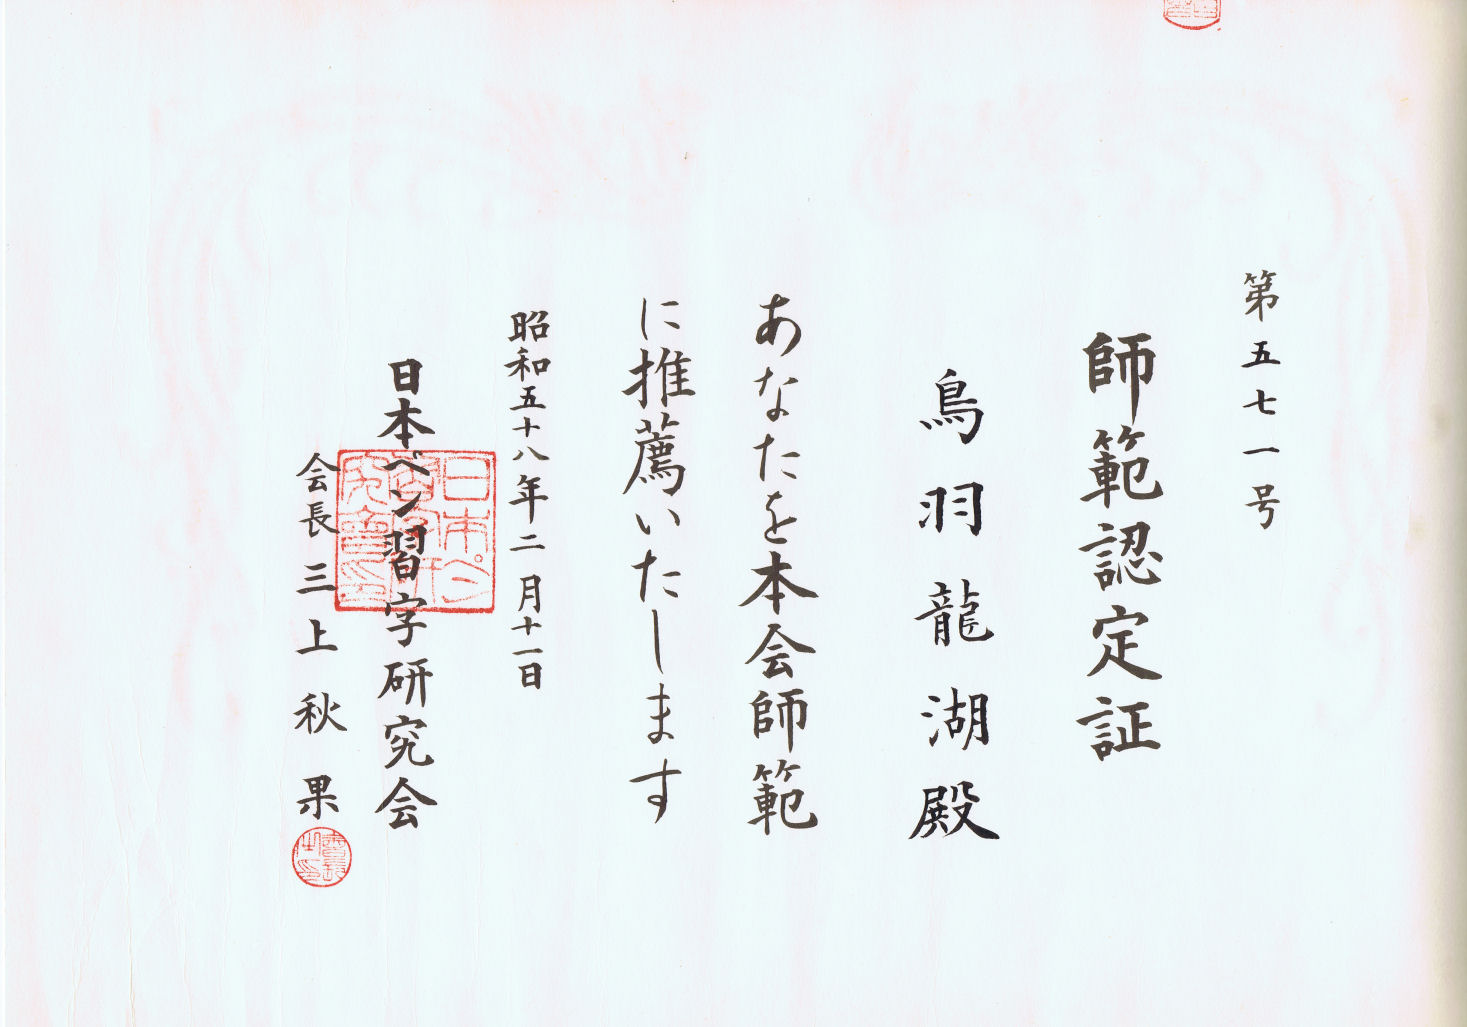 第五七一号
師範認定証
鳥羽龍湖殿
あなたを本会師範
に推薦いたします
昭和五十八年二月十一日
日本ペン習字研究会
会長三上秋果